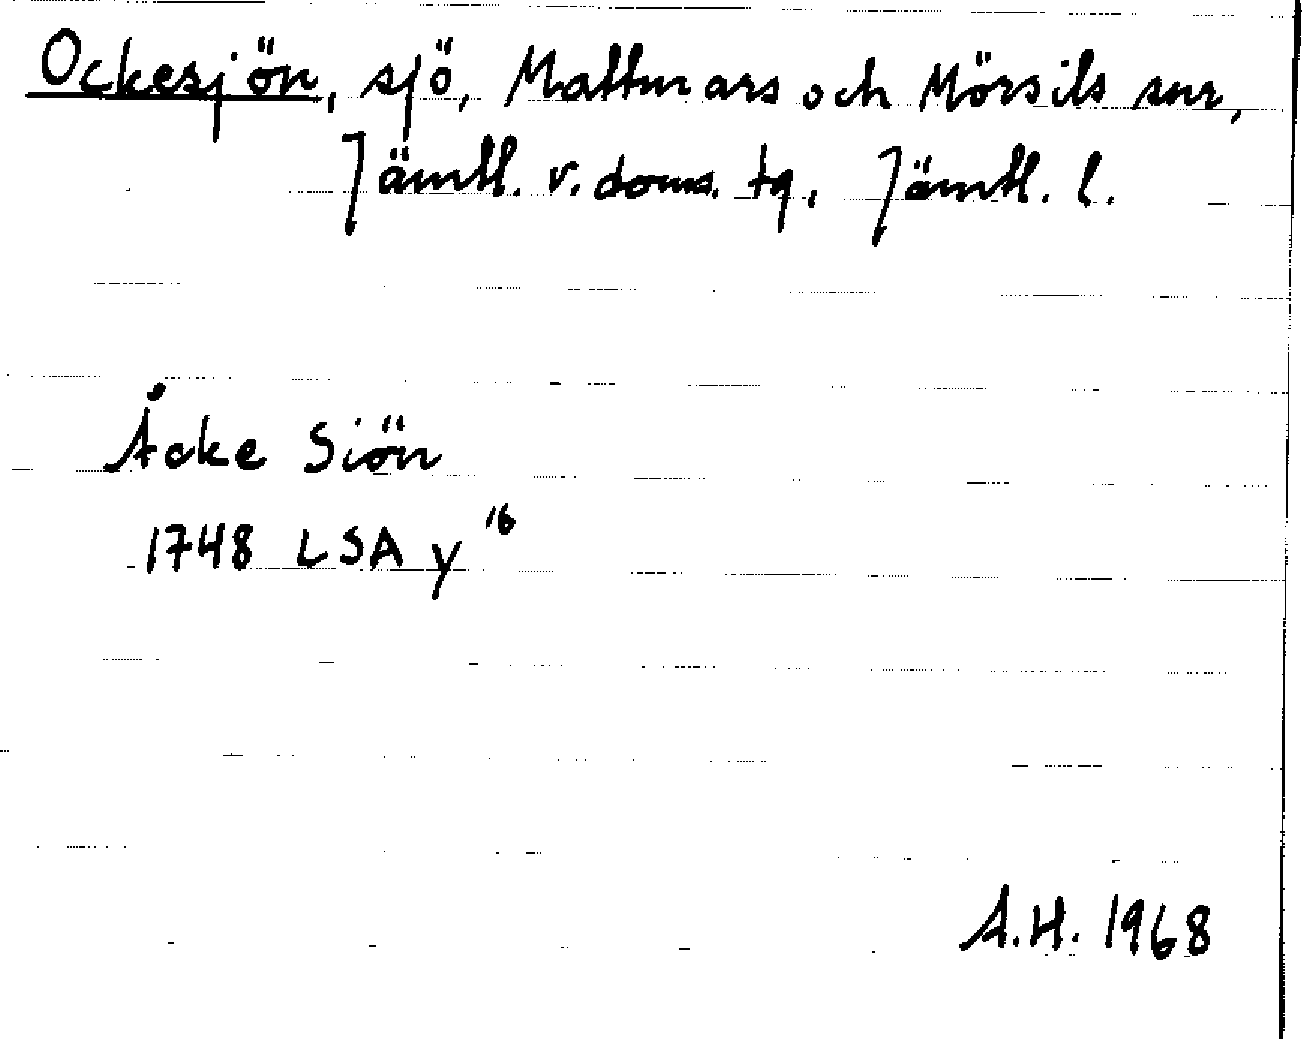 Ockesjön, sjö, Mattmars och Mörsils snr,
Jämtl. v. doms. tg, Jämtl. l.
Åcke Siön
1748 LSA y 16
A.H. 1968